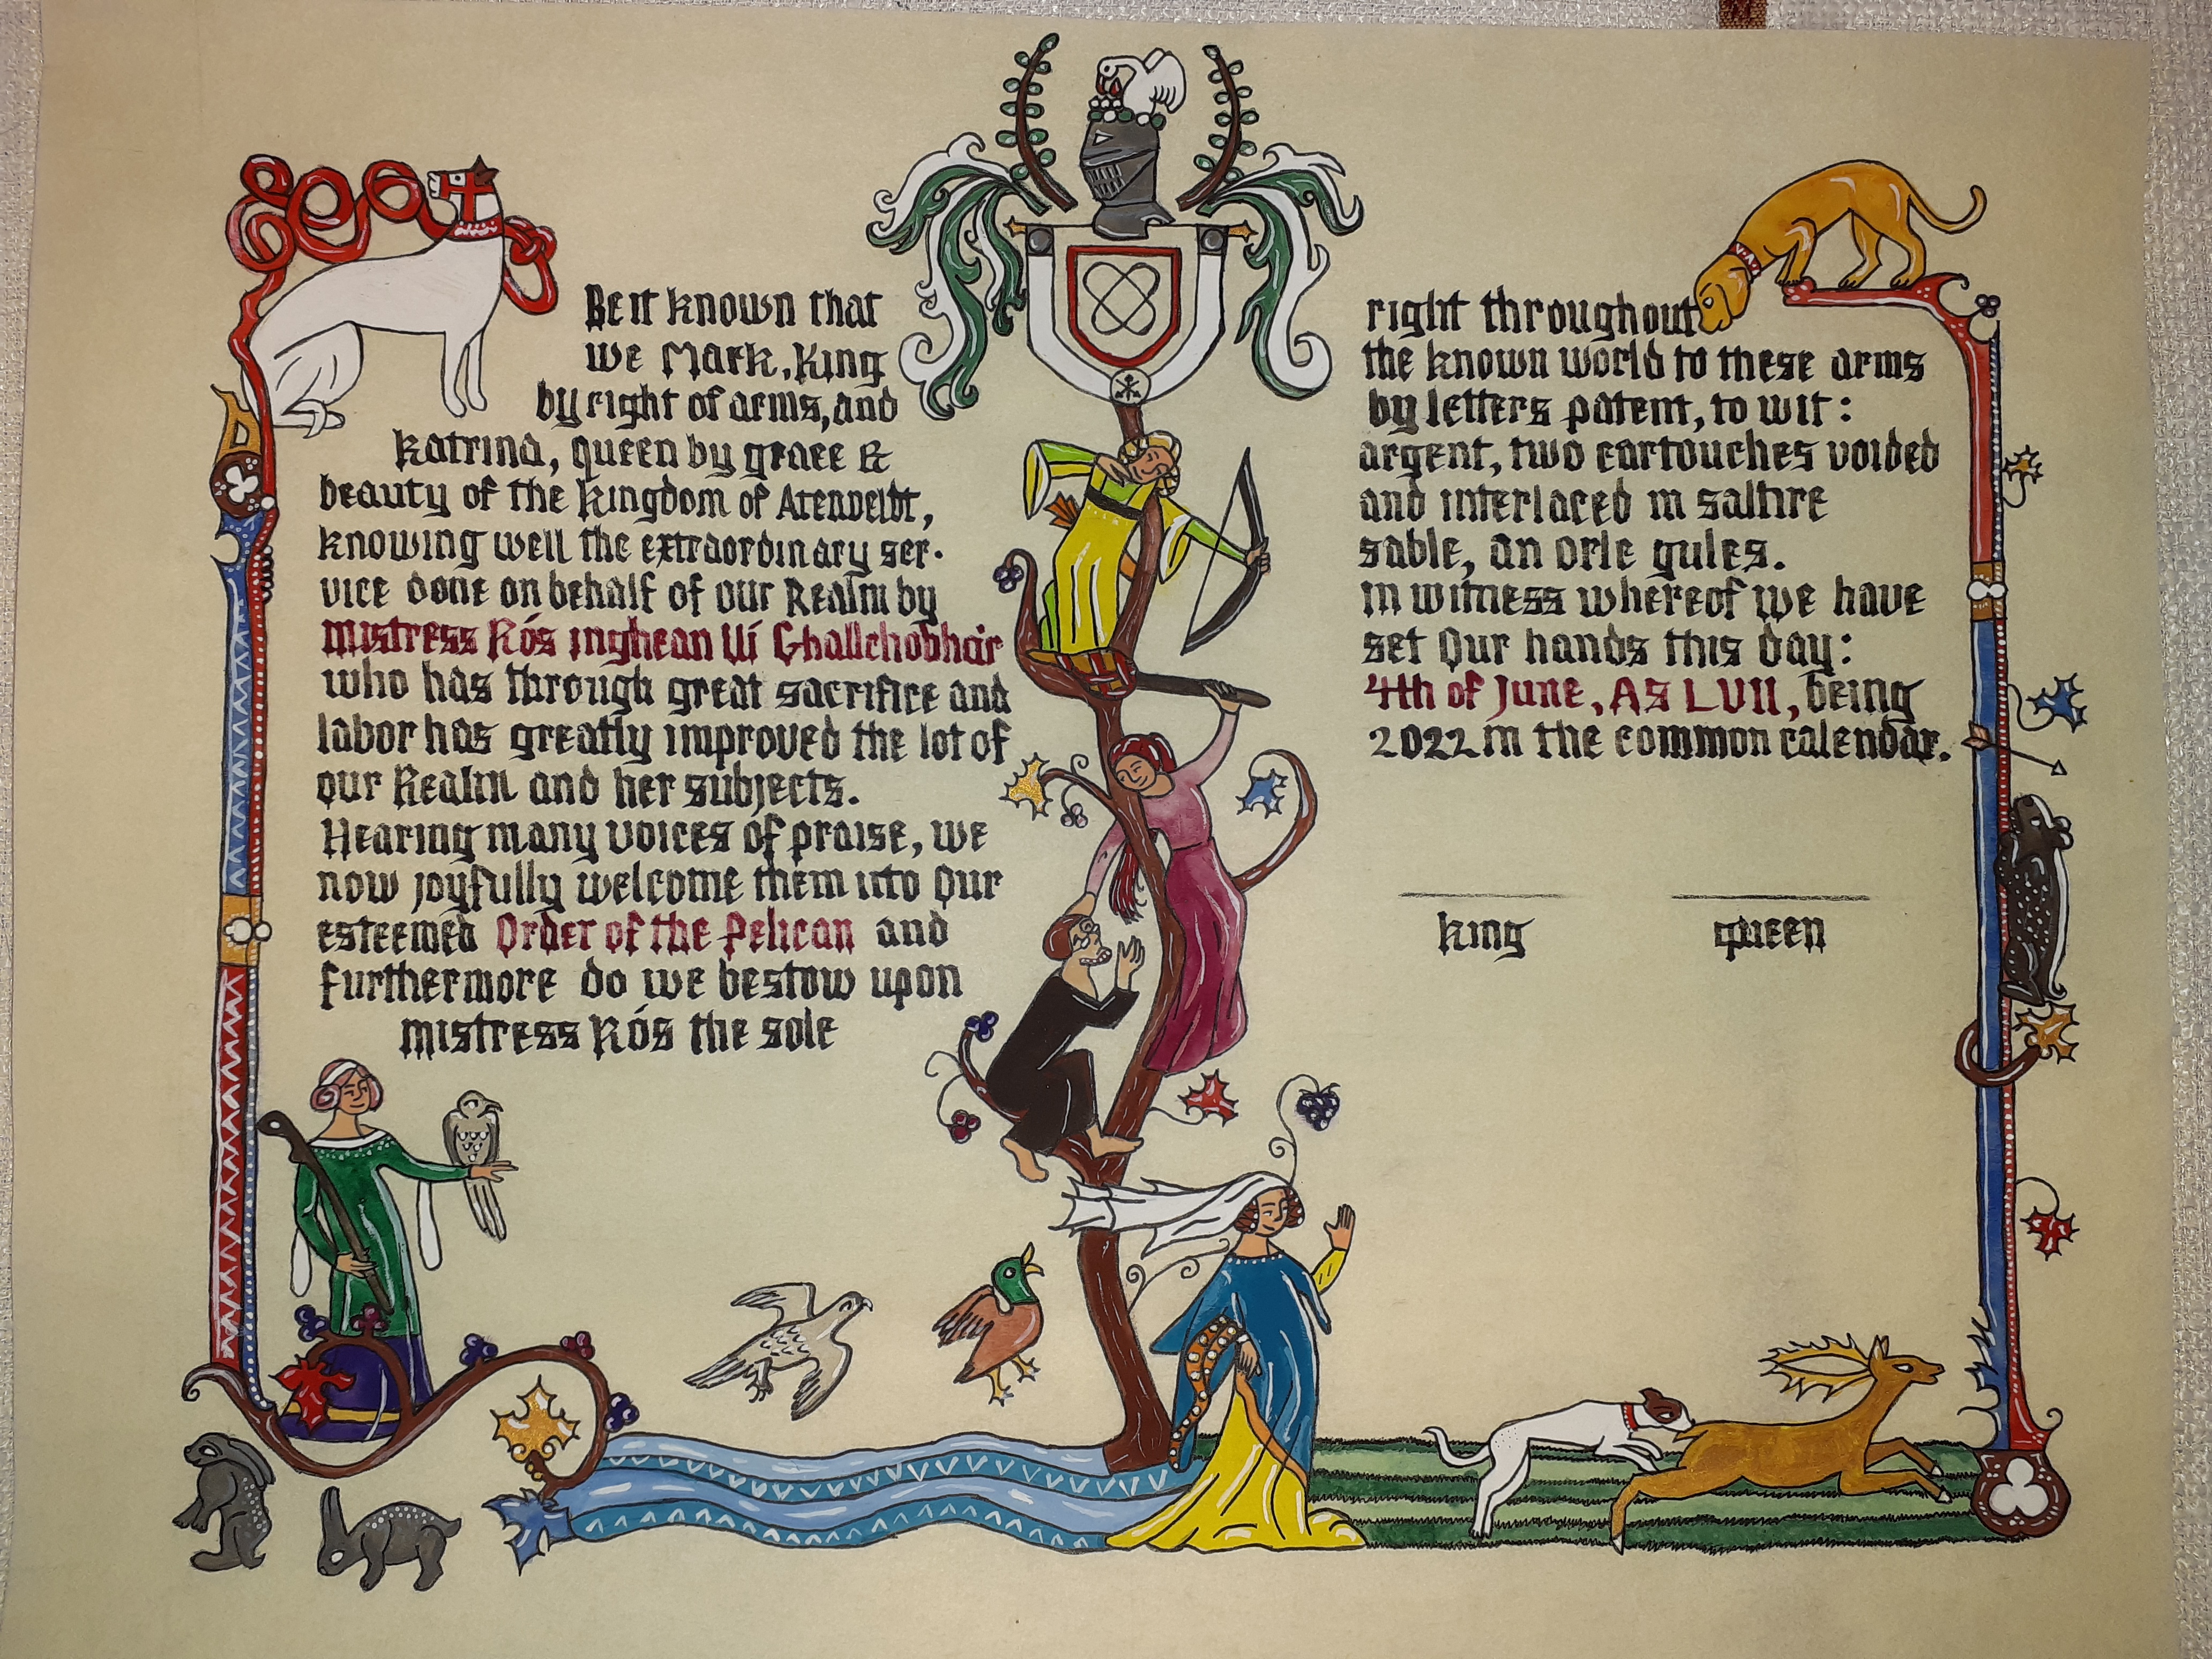 Be it known that
we Mark, King
by right of arms, and
Katrina, queen by grace &
beauty of the kingdom of Atenveldt,
knowing well the extraordinary ser-
vice done on behalf of our Realm by
Mistress Rós inghean Uí Ghallchobhair
who has through great sacrifice and
labor has greatly improved the lot of
our Realm and her subjects.
Hearing many voices of praise, we
now joyfully welcome them into Our
esteemed Order of the Pelican and
furthermore do we bestow upon
Mistress Rós the sole
right throughout
the known world to these arms
by letters patent, to wit:
argent, two cartouches voided
and interlaced in saltire
sable, an orle gules.
in witness whereof we have
set Our hands this day:
4th of June, AS LVII, being
2022 in the common calendar.
king queen